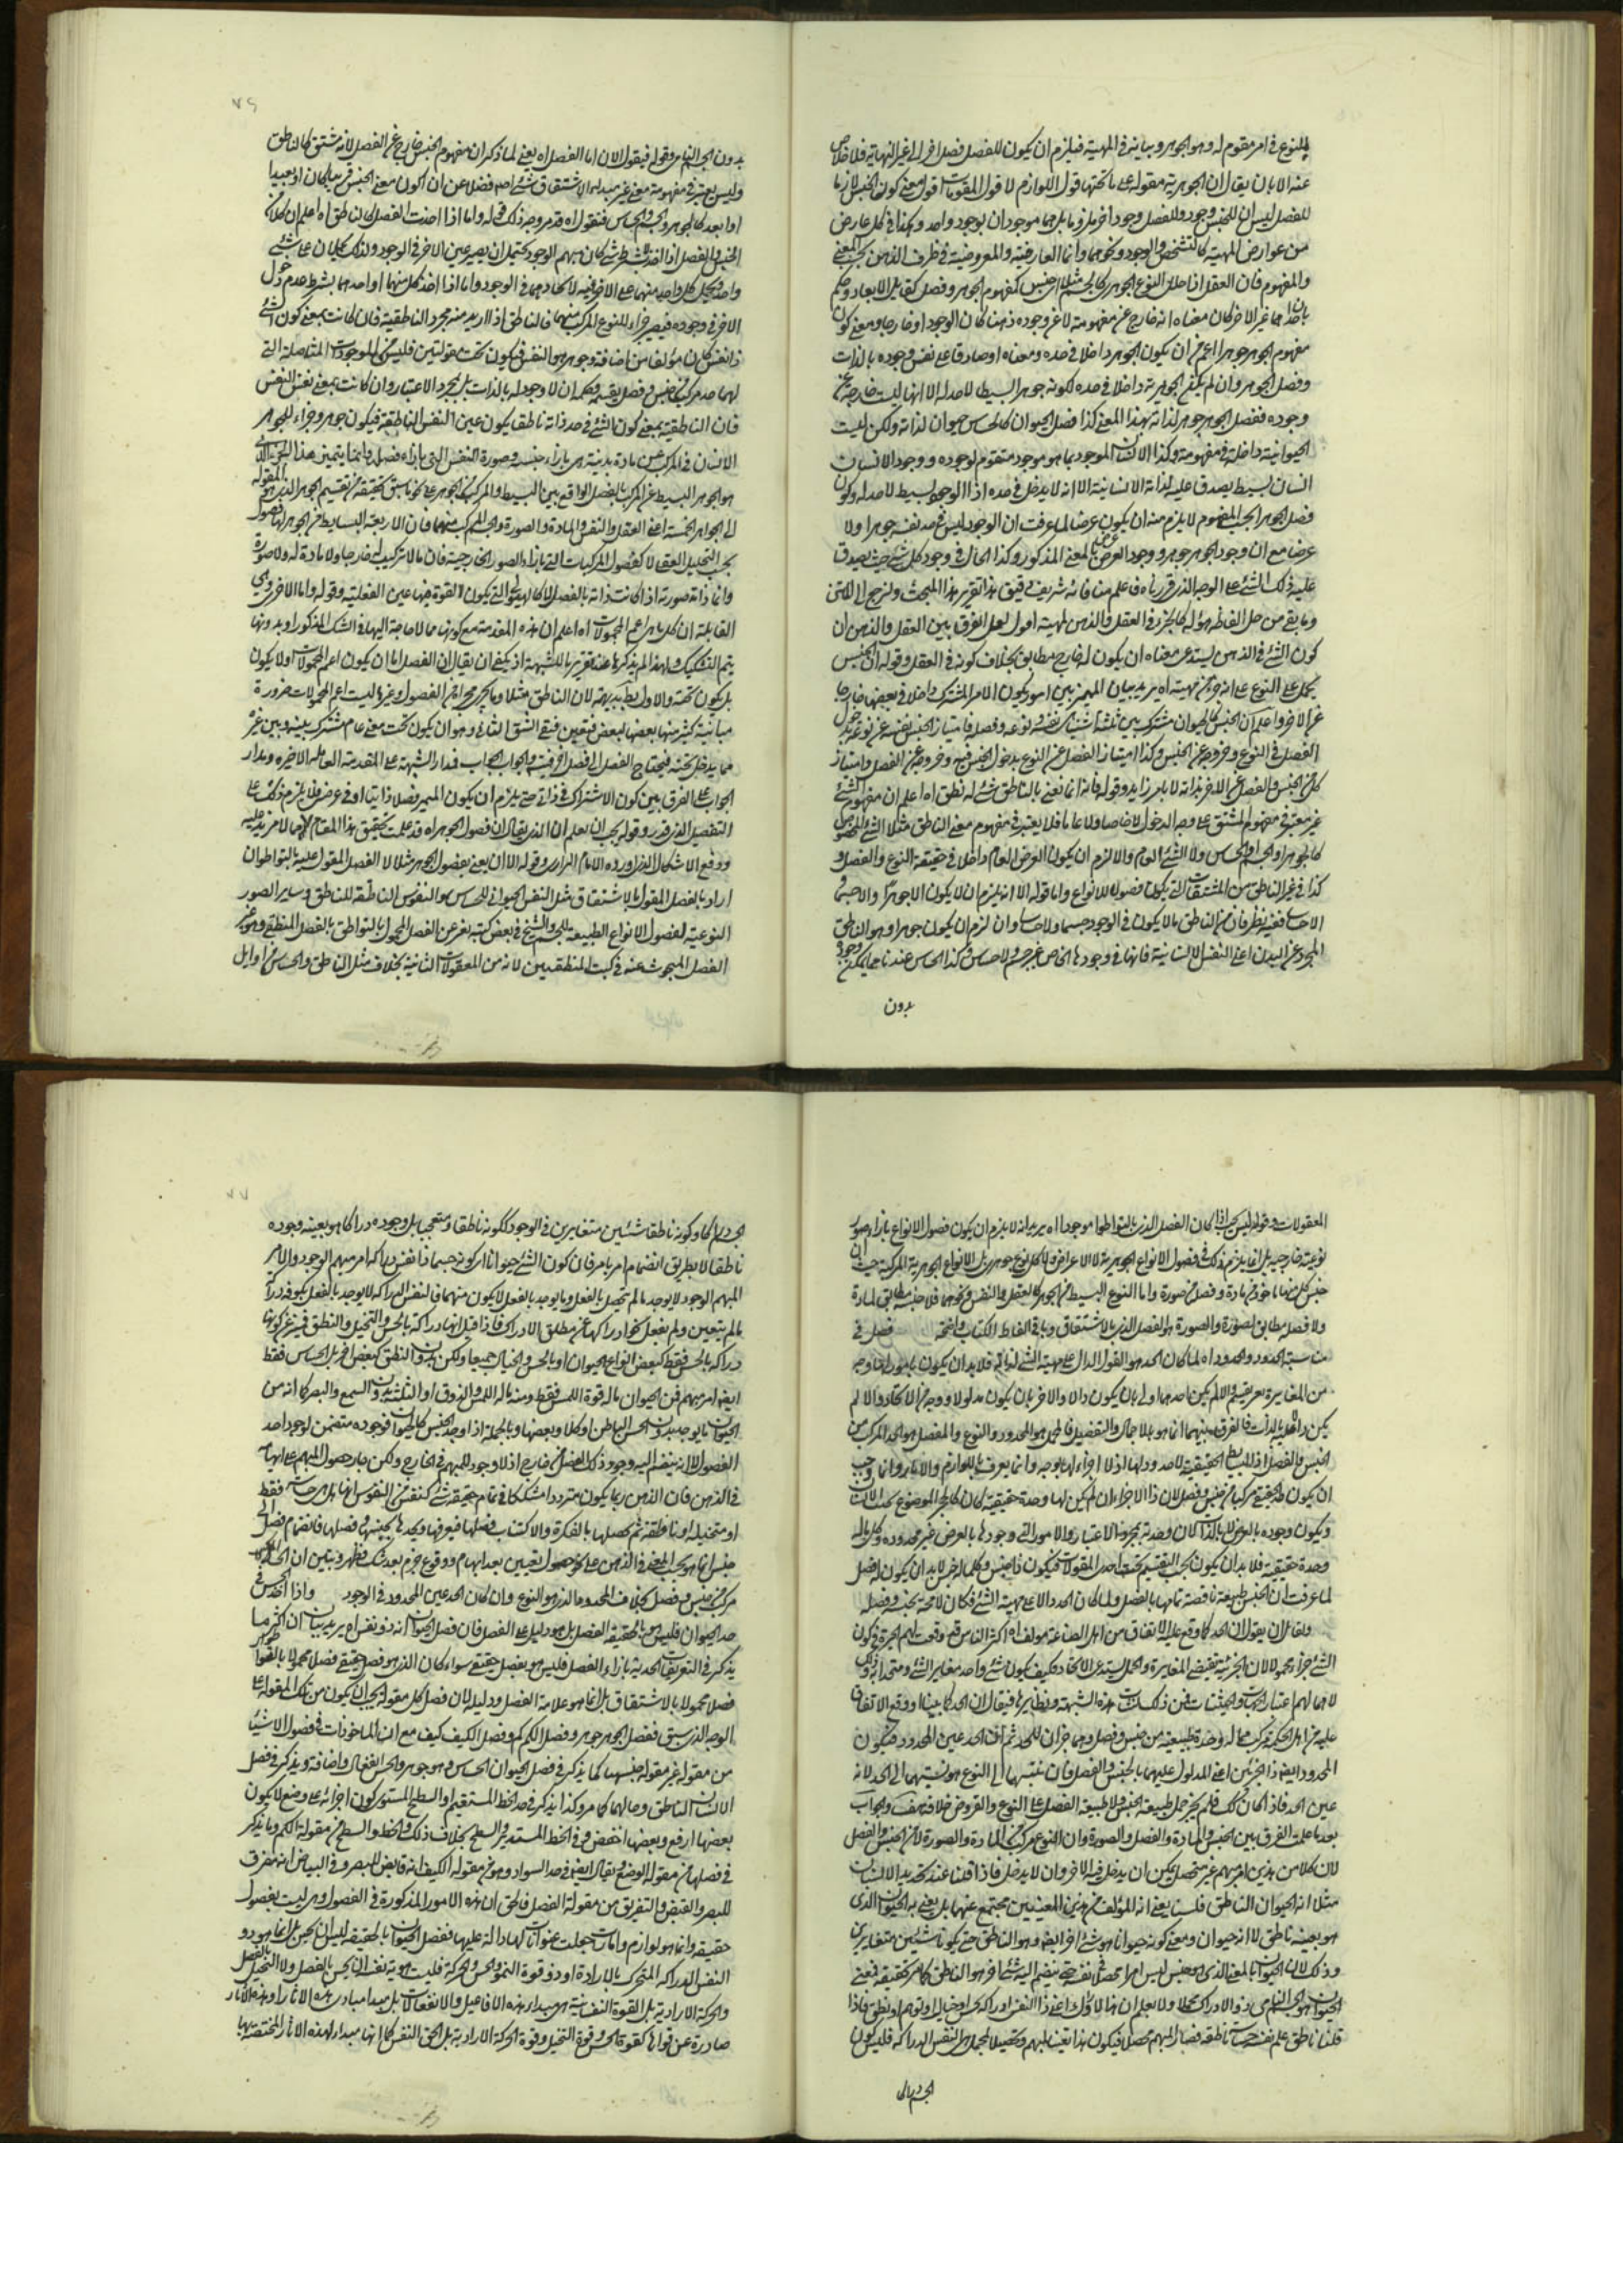 للنوع في امر مقوم له وهو الجوهر ويباينه في المهية فيلزم ان يكون للفصل فصل اخر الى غير النهاية فلا خلاص
عنه الا بان يقال ان الجوهرية مقولة على ما تحتها قول اللوازم لا قول المقومات اقول معنى كون الجنس لازما
للفصل ليس ان للجنس وجود وللفصل وجود اخر ملزوما بل هما موجودان بوجود واحد وهكذا في كل عارض
من عوارض المهية كالتشخص والوجود ونحوهما وانما العارضية والمعروضية في ظرف الذهن بحسب المعنى
والمفهوم فان العقل اذا حلل النوع الجوهري كالجسم مثلا الى جنس كمفهوم الجوهر وفصل كقابل الابعاد وحكم
بان احدهما غير الاخر كان معناه انه خارج عن مفهومه لا عن وجوده ذهنا كان الوجود او خارجا ومعنى كون
مفهوم الجوهر جوهرا اعم من ان يكون الجوهر داخلا في حده ومعناه او صادقا على نفس وجوده بالذات
وفصل الجوهر وان لم يكن الجوهرية داخلا في حده لكونه جوهر البسيطا لا حد له الا انها ليست خارجة عن
وجوده ففصل الجوهر جوهر لذاته بهذا المعنى كذا فصل الحيوان كالحساس حيوان لذاته ولكن ليست
الحيوانية داخلة في مفهومه وكذا الانسان الموجود بما هو موجود متقوم لوجوده ووجود الانسان
انسان بسيط يصدق عليه لذاته الانسانية الا انه لا يدخل في حده اذ الوجود بسيط لا حد له وكون
فصل الجوهر بحسب المفهوم لا يلزم منه ان يكون عرضا لما عرفت ان الوجود ليس في حد نفسه جوهرا ولا
عرضا مع ان وجود الجوهر جوهر ووجود العرض عرض بالمعنى المذكور وكذا الحال في وجود كل شئ حيث يصدق
عليه ذلك الشئ على الوجه الذي قررناه فاعلم هذا فانه شريف دقيق هذا تقرير هذا المبحث ولنرجع الى المتن
وما بقي من حل الفاظه قوله كالجزء في العقل والذهن لمهيته اقول لعل الفرق بين العقل والذهن ان
كون الشئ في الذهن يستدعى معناه ان يكون له خارج مطابق بخلاف كونه في العقل وقوله ان الجنس
يحمل على النوع على انه جزء مهيته اه يريد بيان المميز بين امور يكون الامر المشترك داخلا في بعضها خارجا
عن الاخر واعلم ان الجنس كالحيوان مشترك بين ثلثة اشياء نفسه ونوعه وفصله فامتياز الجنس بنفسه عن نوعه بدخول
الفصل في النوع وخروجه عن الجنس وكذا امتياز الفصل عن النوع بدخول الجنس فيه وخروجه عن الفصل وامتياز
كل من الجنس والفصل عن الاخر بذاته لا بامر زايد وقوله فانه انما نعنى بالناطق شئ له نطق اه اعلم ان مفهوم الشئ
غير معتبر في مفهوم المشتق على وجه الدخول لا خاصا ولا عاما فلا يعتبر في مفهوم معنى الناطق مثلا الشئ المخصوص
كالجوهر او الجسم او الحساس ولا الشئ العام والا لزم ان يكون العرض العام داخلا في حقيقة النوع والفصل و
كذا في غير الناطق من المشتقات التي يكون فصولا للانواع واما قوله الا انه يلزم ان لا يكون الا جوهرا والا جسما و
الا حساسا ففيه نظر فان من الناطق ما لا يكون في الوجود جسما ولا حساسا وان لزم ان يكون جوهرا وهو الناطق
المجرد عن البدن اعني النفس الانسانية فانها في وجودها الخاص غير جسم ولا حساس وكذا الحساس عندنا مما يمكن وجوده
بدون
٧٦
بدون الجسم النامي وقوله فيقول الان اما الفصل اه يعني لما ذكر ان مفهوم الجنس خارج عن الفصل لانه مشتق كالناطق
وليس يعتبر في مفهومه معنى غير مبدء الاشتقاق شئ اصلا فضلا عن ان يكون معنى الجنس قريبا كان او بعيدا
الجنس والفصل اذا اخذ لا بشرط شئ كان مبهم الوجود يحتمل ان يصير عين الاخر في الوجود ولذلك يحملان على شئ
واحد ويحمل كل واحد منهما على الاخر فيه لاتحادهما في الوجود واما اذا اخذ كل منهما او احدهما بشرط عدم دخول
الاخر في وجوده فيصير جزءا للنوع المركب منهما فالناطق اذا اريد منه مجرد الناطقية فان كانت بمعنى كون الشئ
ذا نفس كان مؤلفا من اضافة وجوهر هو النفس فيكون تحت مقولتين فليس من الموجودات المتاصلة التي
لها حد مركب من جنس وفصل بقسميه فحكمه ان لا وجود له بالذات بل بمجرد الاعتبار وان كانت بمعنى نفس النفس
فان الناطقية بمعنى كون الشئ في حد ذاته ناطقا يكون عين النفس الناطقة فيكون جوهر وجزءا للجوهر
الانسان في المركب من مادة بدنية هي بازاء جنسه وصورة النفس التي بازاء فصله وانما يتميز هذا الجوهر الذي
هو الجوهر البسيط عن المركب بالفصل الواقع بين البسيط والمركب من الجوهر على نحو ما سبق تحقيقه من تقسيم الجوهر الذي هو المقولة
الى الجواهر الخمسة اعني العقل والنفس والمادة والصورة والجسم المركب منهما فان الاربعة البسايط من الجوهر لها فصول
بحسب التحليل العقلي لا كفصول المركبات التي بازاء الصور الخارجية فان ما لا تركيب له خارجا ولا مادة له ولا صورة
وانما ذاته صورته اذا كانت ذاته بالفصل لا كالهيولى التي يكون القوة فيها عين الفعلية وقوله واما الاخرى وهي
القابلة ان كل ما هو اعم المحمولات اه اعلم ان هذه المقدمة مع كونها مما لا حاجة اليها في الشك المذكور اذ بدونها
يتم التشكيك ولهذا لم يذكرها عند تقريرنا للشبهة اذ يكفي ان يقال ان الفصل اما ان يكون اعم المحمولات او لا يكون
بل يكون تحته والاول بط بديهة لان الناطق مثلا وما يجري مجراه من الفصول وغيرها ليست اعم المحمولات ضرورة
مباينة كثير منها بعضها لبعض فتعين فيه الشق الثاني وهو ان يكون تحت معنى عام مشترك بينه وبين غيره
مما يدخل تحته فيحتاج الفصل الى فصل اخر فيتسلسل والجواب الجواب فمدار الشبهة على المقدمة القائلة الاخيرة ومدار
الجواب على الفرق بين كون الاشتراك في ذاتي حتى يلزم ان يكون المميز فصلا ذاتيا او في عرضي فلا يلزم ذلك على
التفصيل الذي قدره وقوله يجب ان يعلم ان الذي يقال ان فصول الجوهر اه قد علمت تحقيق هذا المقام بما لا مزيد عليه
ودفع الاشكال الذي اورده الامام الرازي وقوله الا ان يعني بفصول الجوهر مثلا لا الفصل المقول عليه بالتواطؤ ان
اراد بالفصل المقول بالاشتقاق مثل النفس الحيواني للحساس والنفوس الناطقة للناطق وساير الصور
النوعية لفصول الانواع الطبيعية للجسم والشيخ في بعض كتبه يعبر عن الفصل المحمول بالتواطؤ بالفصل المنطقي وهو غير
الفصل المبحوث عنه في كتب المنطقيين لانه من المعقولات الثانية بخلاف مثل الناطق والحساس من اوايل
المعقولات وقوله ليس يجب اذا كان الفصل الذي بالتواطؤ موجودا اه يريد انه لا يلزم ان يكون فصول الانواع بازاء صور
نوعية خارجية بل انما يلزم ذلك في فصول الانواع الجوهرية لا الاعراض ولا كل نوع جوهري بل الانواع الجوهرية المركبة حيث ان
جنس كل منها ماخوذ من مادة وفصل من صورة واما النوع البسيط من الجوهر كالعقل والنفس ونحوهما فلا جنسه مطابق لمادة
ولا فصله مطابق لصورة والصورة هو الفصل الذي بالاشتقاق وباقي الفاظ الكتاب واضحة فصل في
مناسبة الحد ود والمحدود اه لما كان الحد هو القول الدال على مهية الشئ لذاته فلا بد ان يكون بامور لها وجه
من المغايرة بعريفيه والا لم يكن احدهما اولى بان يكون دالا والاخر بان يكون مدلولا ووجه من الاتحاد والا لم
يكن دالا عليه بالذات فالفرق بينهما انما هو بالاجمال والتفصيل فالمجمل هو المحدود والنوع والمفصل هو الحد المركب من
الجنس والفصل اذ البسيط الحقيقية لا حدود لها اذ لا اجزاء لها بوجه وانما يعرف باللوازم والاثار وانما وجب
ان يكون الحد الحقيقي مركبا من جنس وفصل لان ذا الاجزاء ان لم يكن لها وحدة حقيقية كان كالحجر الموضوع بجنب الانسان
ويكون وجوده بالعرض لا بالذات لان وحدته بمجرد الاعتبار والامور التي وجودها بالعرض غير محدودة وكل ما له
وحدة حقيقية فلا بد ان يكون بحسب التقسيم تحت احد المقولات فيكون ذا جنس وكل ما له جنس لا بد ان يكون له فصل
لما عرفت ان الجنس طبيعة ناقصة تمامها بالفصل ولما كان الحد دالا على مهية الشئ فكان لا محة بجنسه وفصله
ولقائل ان يقول ان الحد كما وقع عليه الاتفاق من اهل الصناعة مولف اه اكثر الناس قد وقعت لهم الحيرة في كون
الشئ جزءا محمولا لان الجزئية تقتضي المغايرة والحمل يستدعى الاتحاد فكيف يكون شئ واحد مغاير الشئ ومتحدا به وذلك
لاهمالهم اعتبار الجهات والحيثيات فمن ذلك نشأت هذه الشبهة ونظايرها فيقال ان الحد كما بينا او وقع الاتفاق
عليه من اهل الحكمة مركب مما له وحدة طبيعية من جنس وفصل وهما جزءان للحد ثم ان الحد عين المحدود فيكون
المحدود ايضا ذا جزئين اعني المدلول عليهما بالجنس والفصل فان نسبتهما الى النوع هو نسبتهما الى الحد لانه
عين الحد فاذا كان كك فلم يجز حمل طبيعة الجنس ولا طبيعة الفصل على النوع والفروض خلافه هف والجواب
بعد ما علمت الفرق بين الجنس والمادة والفصل والصورة وان النوع مركب من المادة والصورة لا من الجنس والفصل
لان كلا من هذين امر مبهم غير متحصل يمكن ان يدخل فيه الاخر وان لا يدخل فاذا قلنا عند تحديد الانسان
مثلا انه الحيوان الناطق فلسنا يعني انه المؤلف من هذين المعنيين مجتمع عنهما بل يعني به الحيوان الذي
هو بعينه ناطق لا انه حيوان ومعنى كونه حيوانا هو شئ اخر ايضا وهو الناطق حتى يكونا شيئين متغايرين
وذلك لان الحيوان بالمعنى الذي هو جنس ليس امرا محصلا في نفسه حتى ينضم اليه شئ اخر هو الناطق كما مر تحقيقه فمعنى
الحيوان هو الجسم النامي ذو الادراك مجملا ولا يعلم ان هذا الادراك اعني ذا النفس ادراكه بحس او خيال او توهم او نطق فاذا
قلنا ناطق علم نفسه حساسة ناطقة فصار المبهم محصلا فيكون هذا تعينا للمبهم وتحصيلا لمجمل هو النفس الدراكة فليس كون
الجسم دراكا
٧٧
الجسم دراكا وكونه ناطقا شيئين متغايرين في الوجود ككونه ناطقا ومتعجبا بل وجوده دراكا هو بعينه وجوده
ناطقا لا بطريق انضمام امر بامر فان كون الشئ حيوانا اي كونه جسما ذا نفس دراكة امر مبهم الوجود والامر
المبهم الوجود لا يوجد ما لم يتحصل بالفعل وما يوجد بالفعل لا يكون مبهما فالنفس الدراكة لا يوجد بالفعل بكونه دراكة
ما لم يتعين ولم يفعل نحو ادراكها عن مطلق الادراك فاذا قيل انها دراكة بالحس والتخيل والنطق فميز عن كونها
دراكة بالحس فقط كبعض انواع الحيوان او بالحس والخيال جميعا ولكن بدون النطق كبعض اخر بل الحساس فقط
ايضا امر مبهم فمن الحيوان ما له قوة اللمس فقط ومنه ما له اللمس والذوق او الثلثة بدون السمع والبصر كما انه من
الحيوان ما يوجد بدون الحس الباطن او كلا وبعضها وبالجملة اذا وجد الجنس كالحيوان فوجوده متضمن لوجود احد
الفصول لا انه ينضم اليه وجود ذلك الفصل من خارج اذ لا وجود للمبهم في الخارج ولكن جاز حصول المبهم على ابهامه
في الذهن فان الذهن ربما يكون مترددا متشككا في تمام حقيقة شئ كنفس من النفوس انها هل هي حساسة فقط
او متخيلة او ناطقة ثم يحصلها بالفكرة والاكتساب فصلها فيعرفها ويحدها بجنسها وفصلها فانضمام فصل الى
جنس انما هو بحسب المعنى في الذهن على نحو حصول تعيين بعد ابهام ووقوع جزم بعد شك فظهر وتبين ان الحد
مركب من جنس وفصل بخلاف المحدود الذي هو النوع وان كان الحد عين المحدود في الوجود واذا اخذ في
حد الحيوان فليس هو بالحقيقة الفصل بل هو دليل على الفصل فان فصل الحيوان انه ذو نفس اه يريد بيان ان اكثر ما
يذكر في التعريفات الحدية بازاء الفصل فليس هو بفصل حقيقي سواء كان الذي هو فصل حقيقي فصلا محمولا بالتواطؤ او
فصلا محمولا بالاشتقاق بل انما هو علامة الفصل ودليله لان فصل كل مقولة يجب ان يكون من تلك المقولة على
الوجه الذي سبق ففصل الجوهر جوهر وفصل الكم كم وفصل الكيف كيف مع ان الماخوذات في فصول الاشياء
من مقولة غير مقولة جنسها كما يذكر في فصل الحيوان الحساس وهو جوهر والحس انفعال واضافة ويذكر في فصل
الانسان الناطق وحالهما كما مر وكذا يذكر في حد الخط المستقيم او السطح المستوى كون اجزائه على وضع لا يكون
بعضها ارفع وبعضها اخفض وفي الخط المستدير والسطح بخلاف ذلك والخط والسطح من مقولة الكم وما يذكر
في فصلها من مقولة الوضع ويقال ايضا في حد السواد وهو من مقولة الكيف انه قابض للبصر وفي البياض انه مفرق
للبصر والقبض والتفريق من مقولة الفعل فالحق ان هذه الامور المذكورة في الفصول وهي ليست بفصول
حقيقية وانما هو لوازم وامارات جعلت عنوانات لها دالة عليها ففصل الحيوان بالحقيقة ليس ان يحس بل انما هو ذو
النفس الدراكة المتحرك بالارادة او ذو قوة النمو والحس والحركة فليست هوية نفسه ان يحس بالفصل ولا التخيل بالفصل
والحركة الارادية بل القوة النفسانية هي مبدأ هذه الافاعيل والانفعالات بل مبدأ مبادي هذه الاثار او هذه الاثار
صادرة عن قواها كقوة الحس وقوة التخيل وقوة الحركة الارادية بل الحق النفس كما انها مبدأ لهذه الاثار المختصة بها